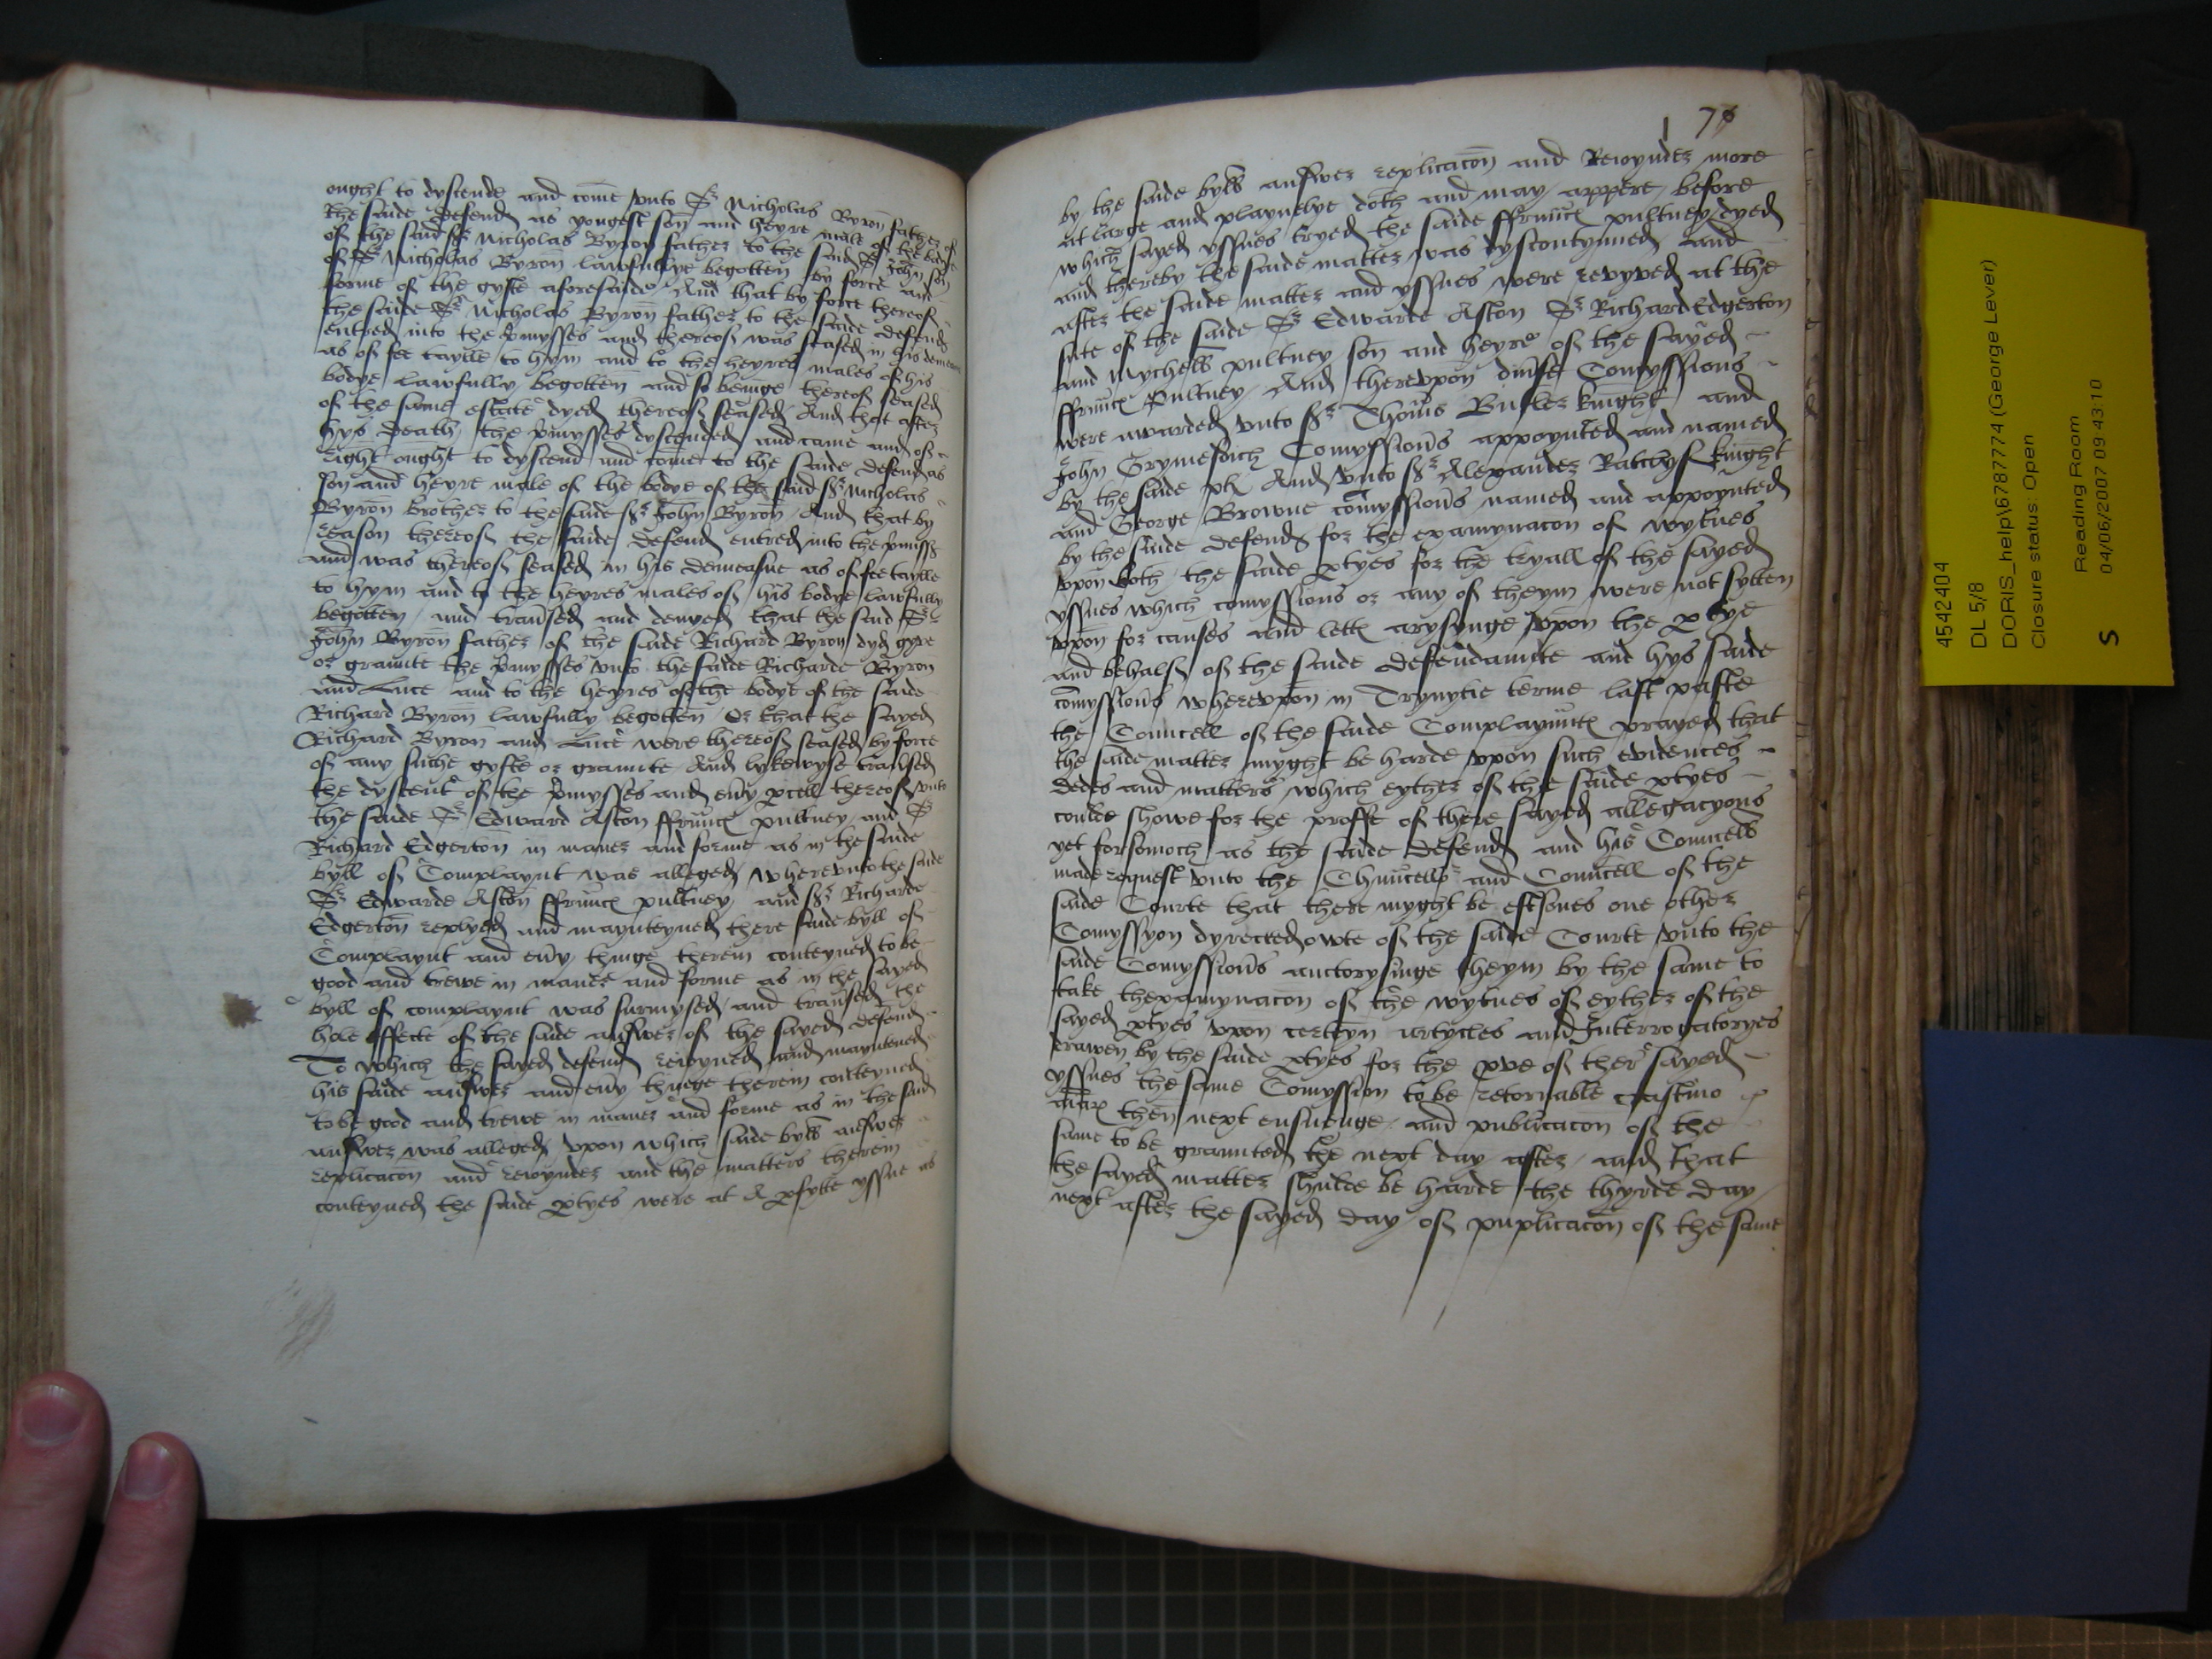 ought to dyscende and come unto Sr Nicholas Byron father of
the saide defend as yongest son and heyre male of the bodye
of the said Sr Nicholas Byron father to the said Sr John son
of Sr Nicholas Byron lawfullye begotten by force and
forme of the gyfte aforesaide And that by force thereof
the saide Sr Nicholas Byron father to the saide defend
entred into the pmysses and thereof was seased in his demean
as of fee taylle to hym and to the heyres males of his
bodye lawfully begotten and so beinge thereof seased
of the same estate dyed thereof seased And that after
hys death the pmysses dyscended and came and of
right ought to dyscend and come to the saide defend as
son and heyre male of the bodye of the said Sr Nicholas
Byron brother to the saide Sr John Byron And that by
reason thereof the saide defend entred into the pmiss
and was thereof seased in his demeasne as of fee taylle
to hym and to the heyres males of his bodye lawfully
begotten and traused and denyed that the said Sr
John Byron father of the saide Richard Byron dyd gyve
or graunte the pmysses unto the saide Richarde Byron
and Luce and to the heyres of the bodye of the saide
Richard Byron lawfully begotten Or that the sayed
Richard Byron and Luce were thereof seased by force
of any suche gyfte or graunte And lykewyse traused
the dyscent of the pmysses and eny pcell thereof unto
the saide Sr Edward Aston ffrunces pultney and Sr
Richard Edgerton in maner and forme as in the saide
byll of Complaynt was alleged whereunto the saide
Sr Edwarde Aston ffrunces pultney and Sr Richarde
Edgerton replyed and maynteyned there saide byll of
Complaynt and eny thinge therein conteyned to be
good and trewe in maner and forme as in the sayed
byll of complaynt was surmysed and traused the
hole effecte of the saide answer of the sayed defend
To which the sayed defend reioyned and mayntened
his saide answer and eny thinge therein conteyned
to be good and trewe in maner and forme as in the said
answer was alleged upon which saide byll answer
replicacon and reioynder and the matters therein
conteyned the saide ptyes were at A pfytte yssue as
76
by the saide byll answer replicacon and Reioynder more
at large and playnelye doth and may appere before
which sayed yssues tryed the saide ffrunces pultney dyed
and thereby the saide matter was dyscontynued and
after the saide matter and yssues were revyved at the
sute of the saide Sr Edwarde Aston Sr Richard Edgerton
and Mychell pultney son and heyre of the sayed
ffrunces Pultney And thereupon divse Comyssions
were awarded unto Sr Thoms Butler knight and
John Grymesdich Comyssions appoynted and named
by the saide pl And unto Sr Alexander Ratclyf knight
and George Browne comyssions named and appoynted
by the saide defend for the examynacon of wytnes
upon both the saide ptyes for the tryall of the sayed
yssues which comyssions or any of theym were not sytten
upon for causes and lett arysynge upon the ptye
and behalf of the saide defendaunte and hys saide
comyssions whereupon in Trynytie terme last paste
the Councell of the saide Complaynaunt prayed that
the saide matter myght be harde upon such evidences
dedes and matters which eyther of the saide ptyes
coulde showe for the proffe of there sayed allegacyons
yet forsomoch as the saide defend and his Councell
made request unto the Chauncellor and Councell of the
saide Courte that there myght be eftsones one other
Comyssyon dyrected owte of the saide Courte unto the
saide Comyssions auctorysinge theym by the same to
take thexamynacon of the wytnes of eyther of the
sayed ptyes upon certeyn artycles and Interrogatoryes
drawen by the saide ptyes for the pve of ther sayed
yssues the same Comyssion to be retornable crastino
then next ensuenge and publicacon of the
same to be graunted the next day after and that
the sayed matter shulde be harde the thyrde day
next after the sayed day of puplicacon of the same
4542404
DL 5/8
DORIS_help\6787774 (George Lever)
Closure status: Open
Reading Room
S 04/06/2007 09 43:10